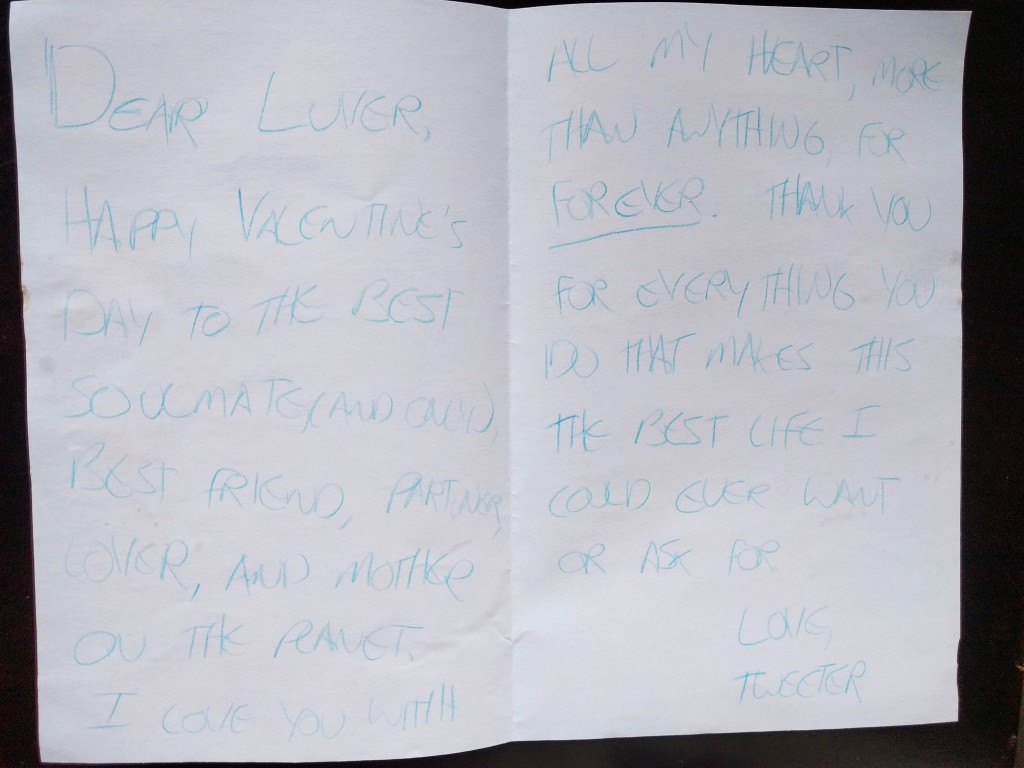 DEAR LUVER,
HAPPY VALENTINE'S
DAY TO THE BEST
SOULMATE (AND ONLY),
BEST FRIEND, PARTUNER,
LOVER, AND MOTHER
ON THE PLANET.
I LOVE YOU WITH
ALL MY HEART, MORE
THAN ANYTHING, FOR
FOREVER. THANK YOU
FOR EVERYTHING YOU
DO THAT MAKES THIS
THE BEST LIFE I
COULD EVER WANT
OR ASK FOR
LOVE,
TWEETER